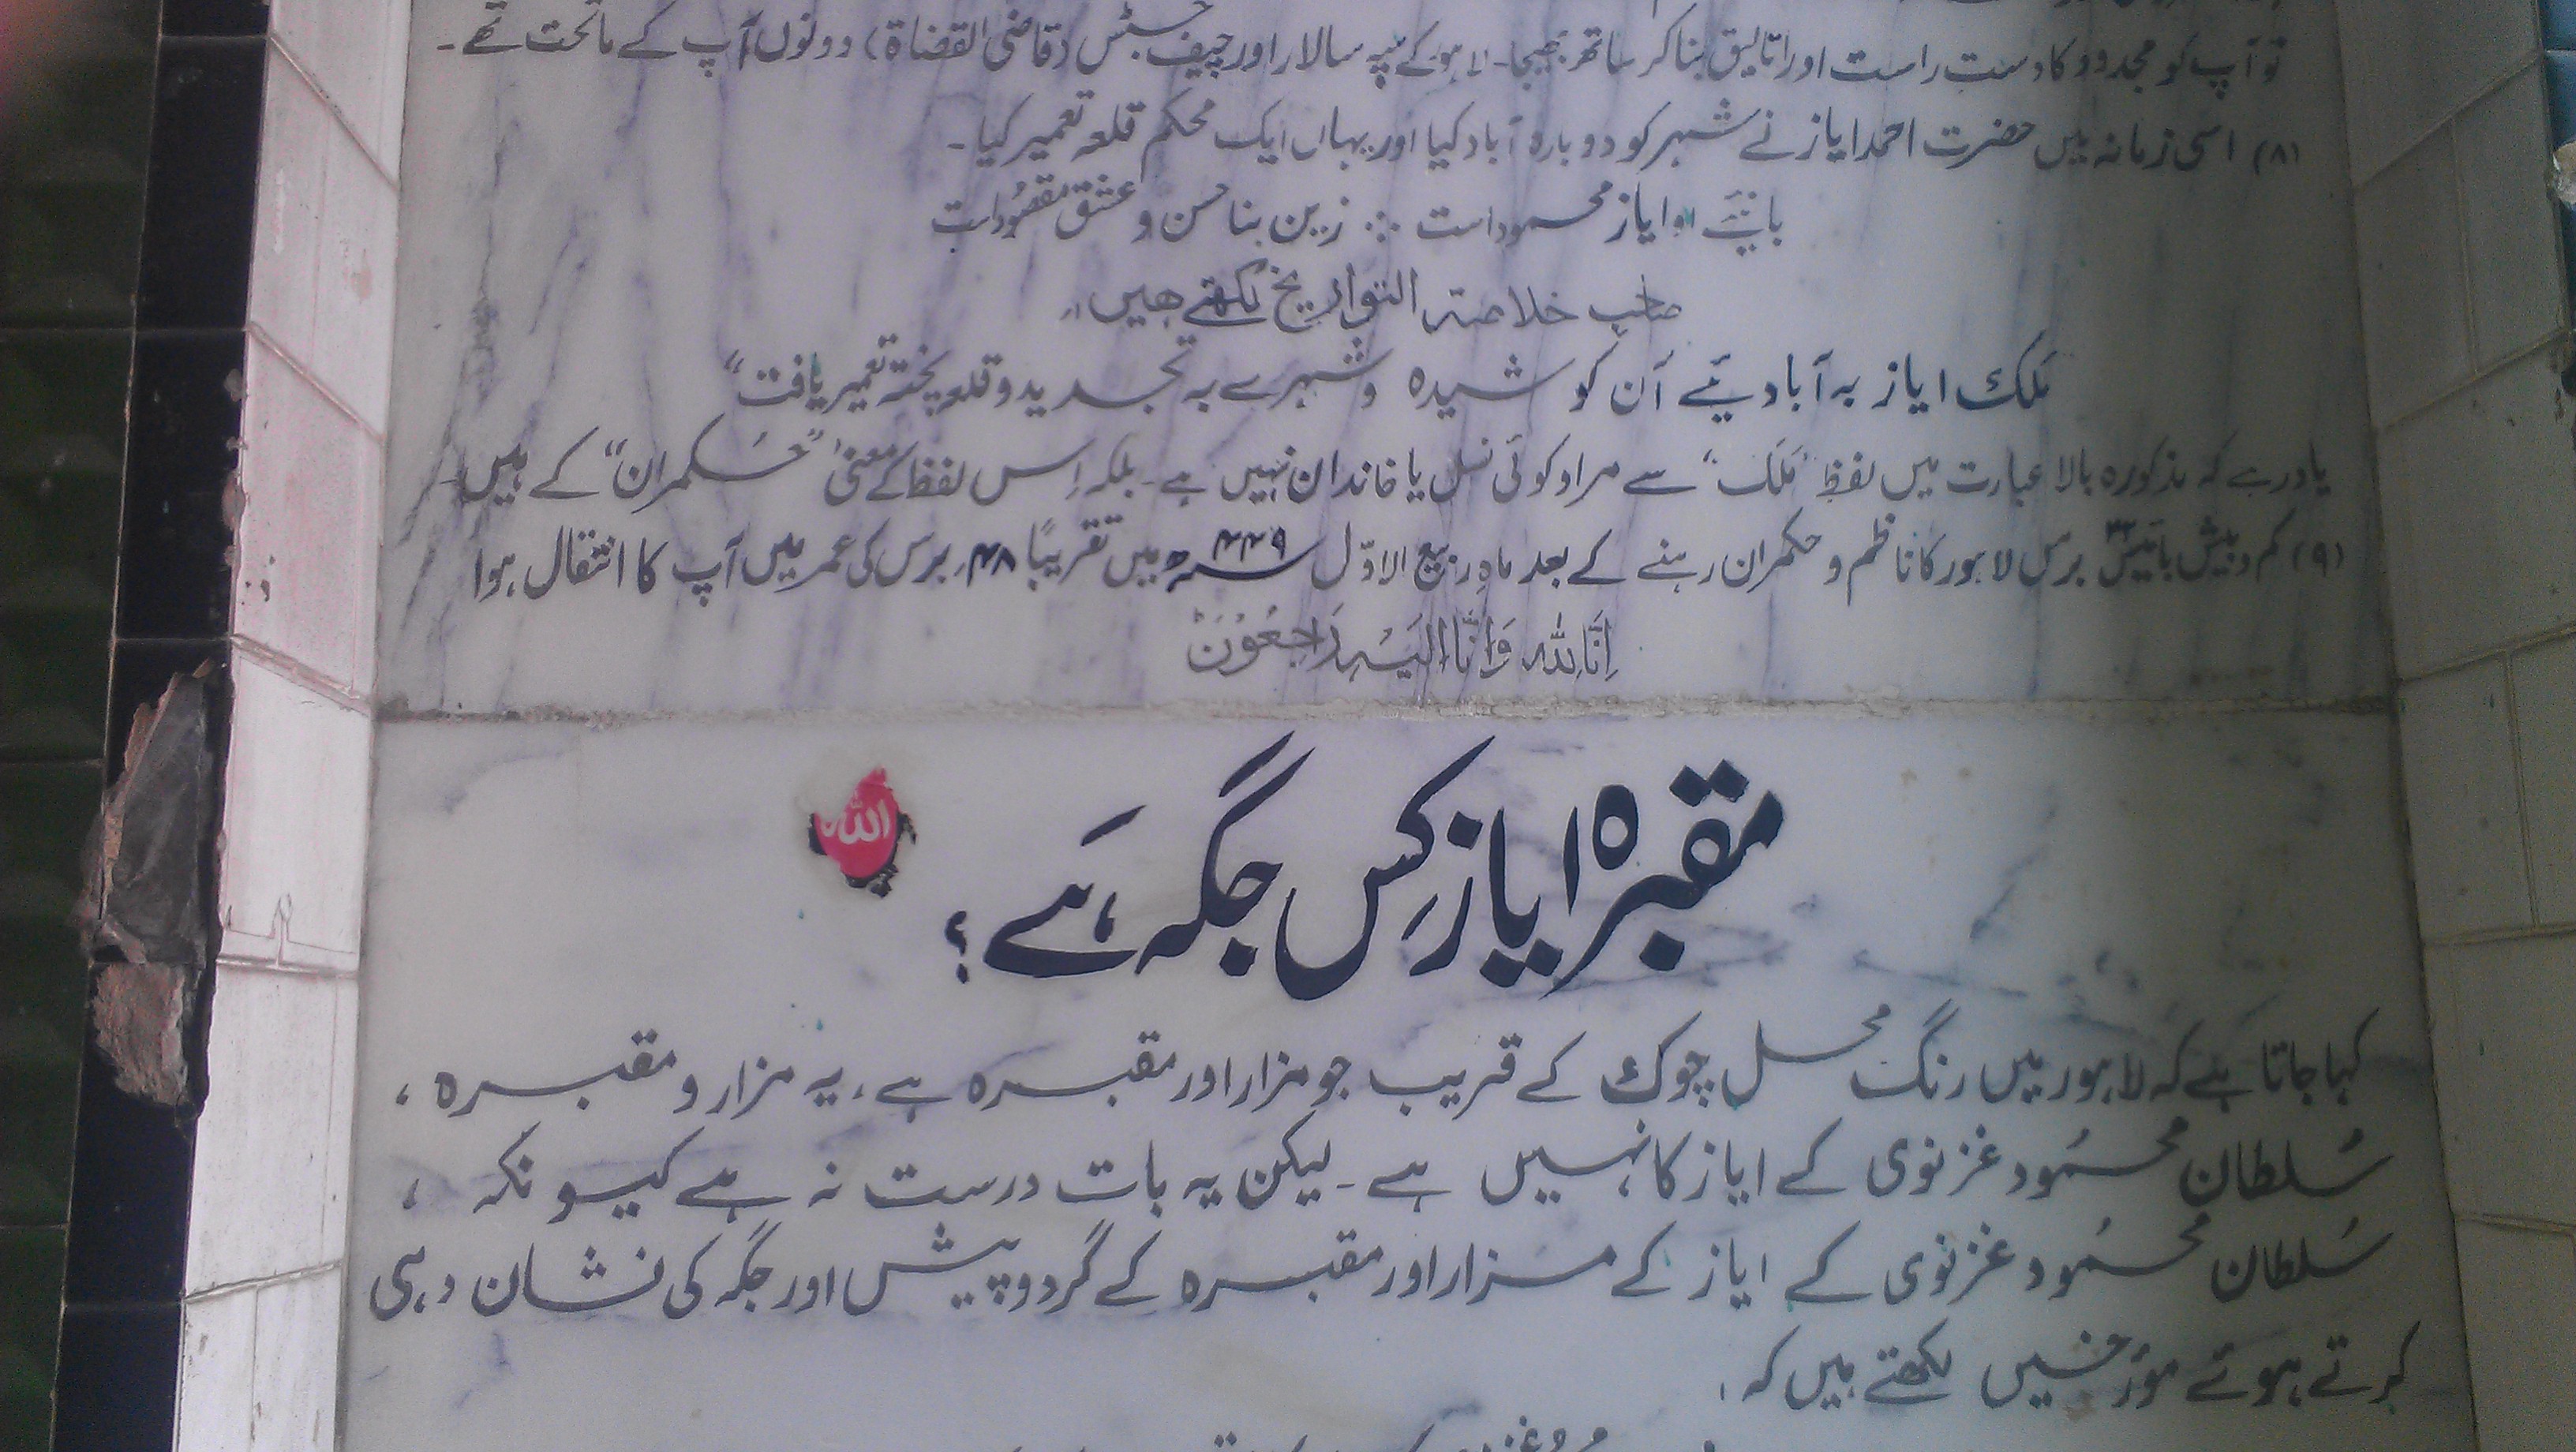 تو آپ کو مجدود کا دست راست اور اتالیق بنا کر ساتھ بھیجا۔ لاہور کے سپہ سالار اور چیف جسٹس (قاضی القضاۃ) دونوں آپ کے ماتحت تھے۔
(۸) اسی زمانہ میں حضرت احمد ایاز نے شہر کو دوبارہ آباد کیا اور یہاں ایک محکم قلعہ تعمیر کیا۔
او ایاز محمود است ∴ زین بنا حسن و عشق مقصود است
صاحب خلاصۃ التواریخ لکھتے ھیں
مَلک ایاز بہ آبادئیے آن کوشیدہ و شہرے بہ تجدید و قلعہ پختہ تعمیر یافت“
یاد رہے کہ مذکورہ بالا عبارت میں لفظ ”مَلک“ سے مراد کوئی نسل یا خاندان نہیں ہے۔ بلکہ اِس لفظ کے معنیٰ ”حُکمران“ کے ہیں۔
(۹) کم و بیش بائیس ۲۲ برس لاہور کا ناظم و حکمران رہنے کے بعد ماہِ ربیع الاوّل ۴۴۹ھ میں تقریبًا ۴۸ برس کی عمر میں آپ کا انتقال ہوا
اِنَّا لِلّٰہِ وَاِنَّا اِلَیْہِ رَاجِعُوْنَ
اللہ
مقبرہ ایاز کِس جگہ ہَے ؟
کہا جاتا ہے کہ لاہور میں رنگ محل چوک کے قریب جو مزار اور مقبرہ ہے، یہ مزار و مقبرہ ،
سُلطان محمُود غزنوی کے ایاز کا نہیں ہے۔ لیکن یہ بات درست نہ ہے کیونکہ ،
سُلطان محمُود غزنوی کے ایاز کے مزار اور مقبرہ کے گرد و پیش اور جگہ کی نشان دہی
کرتے ہوئے مؤرخیں لکھتے ہیں کہ